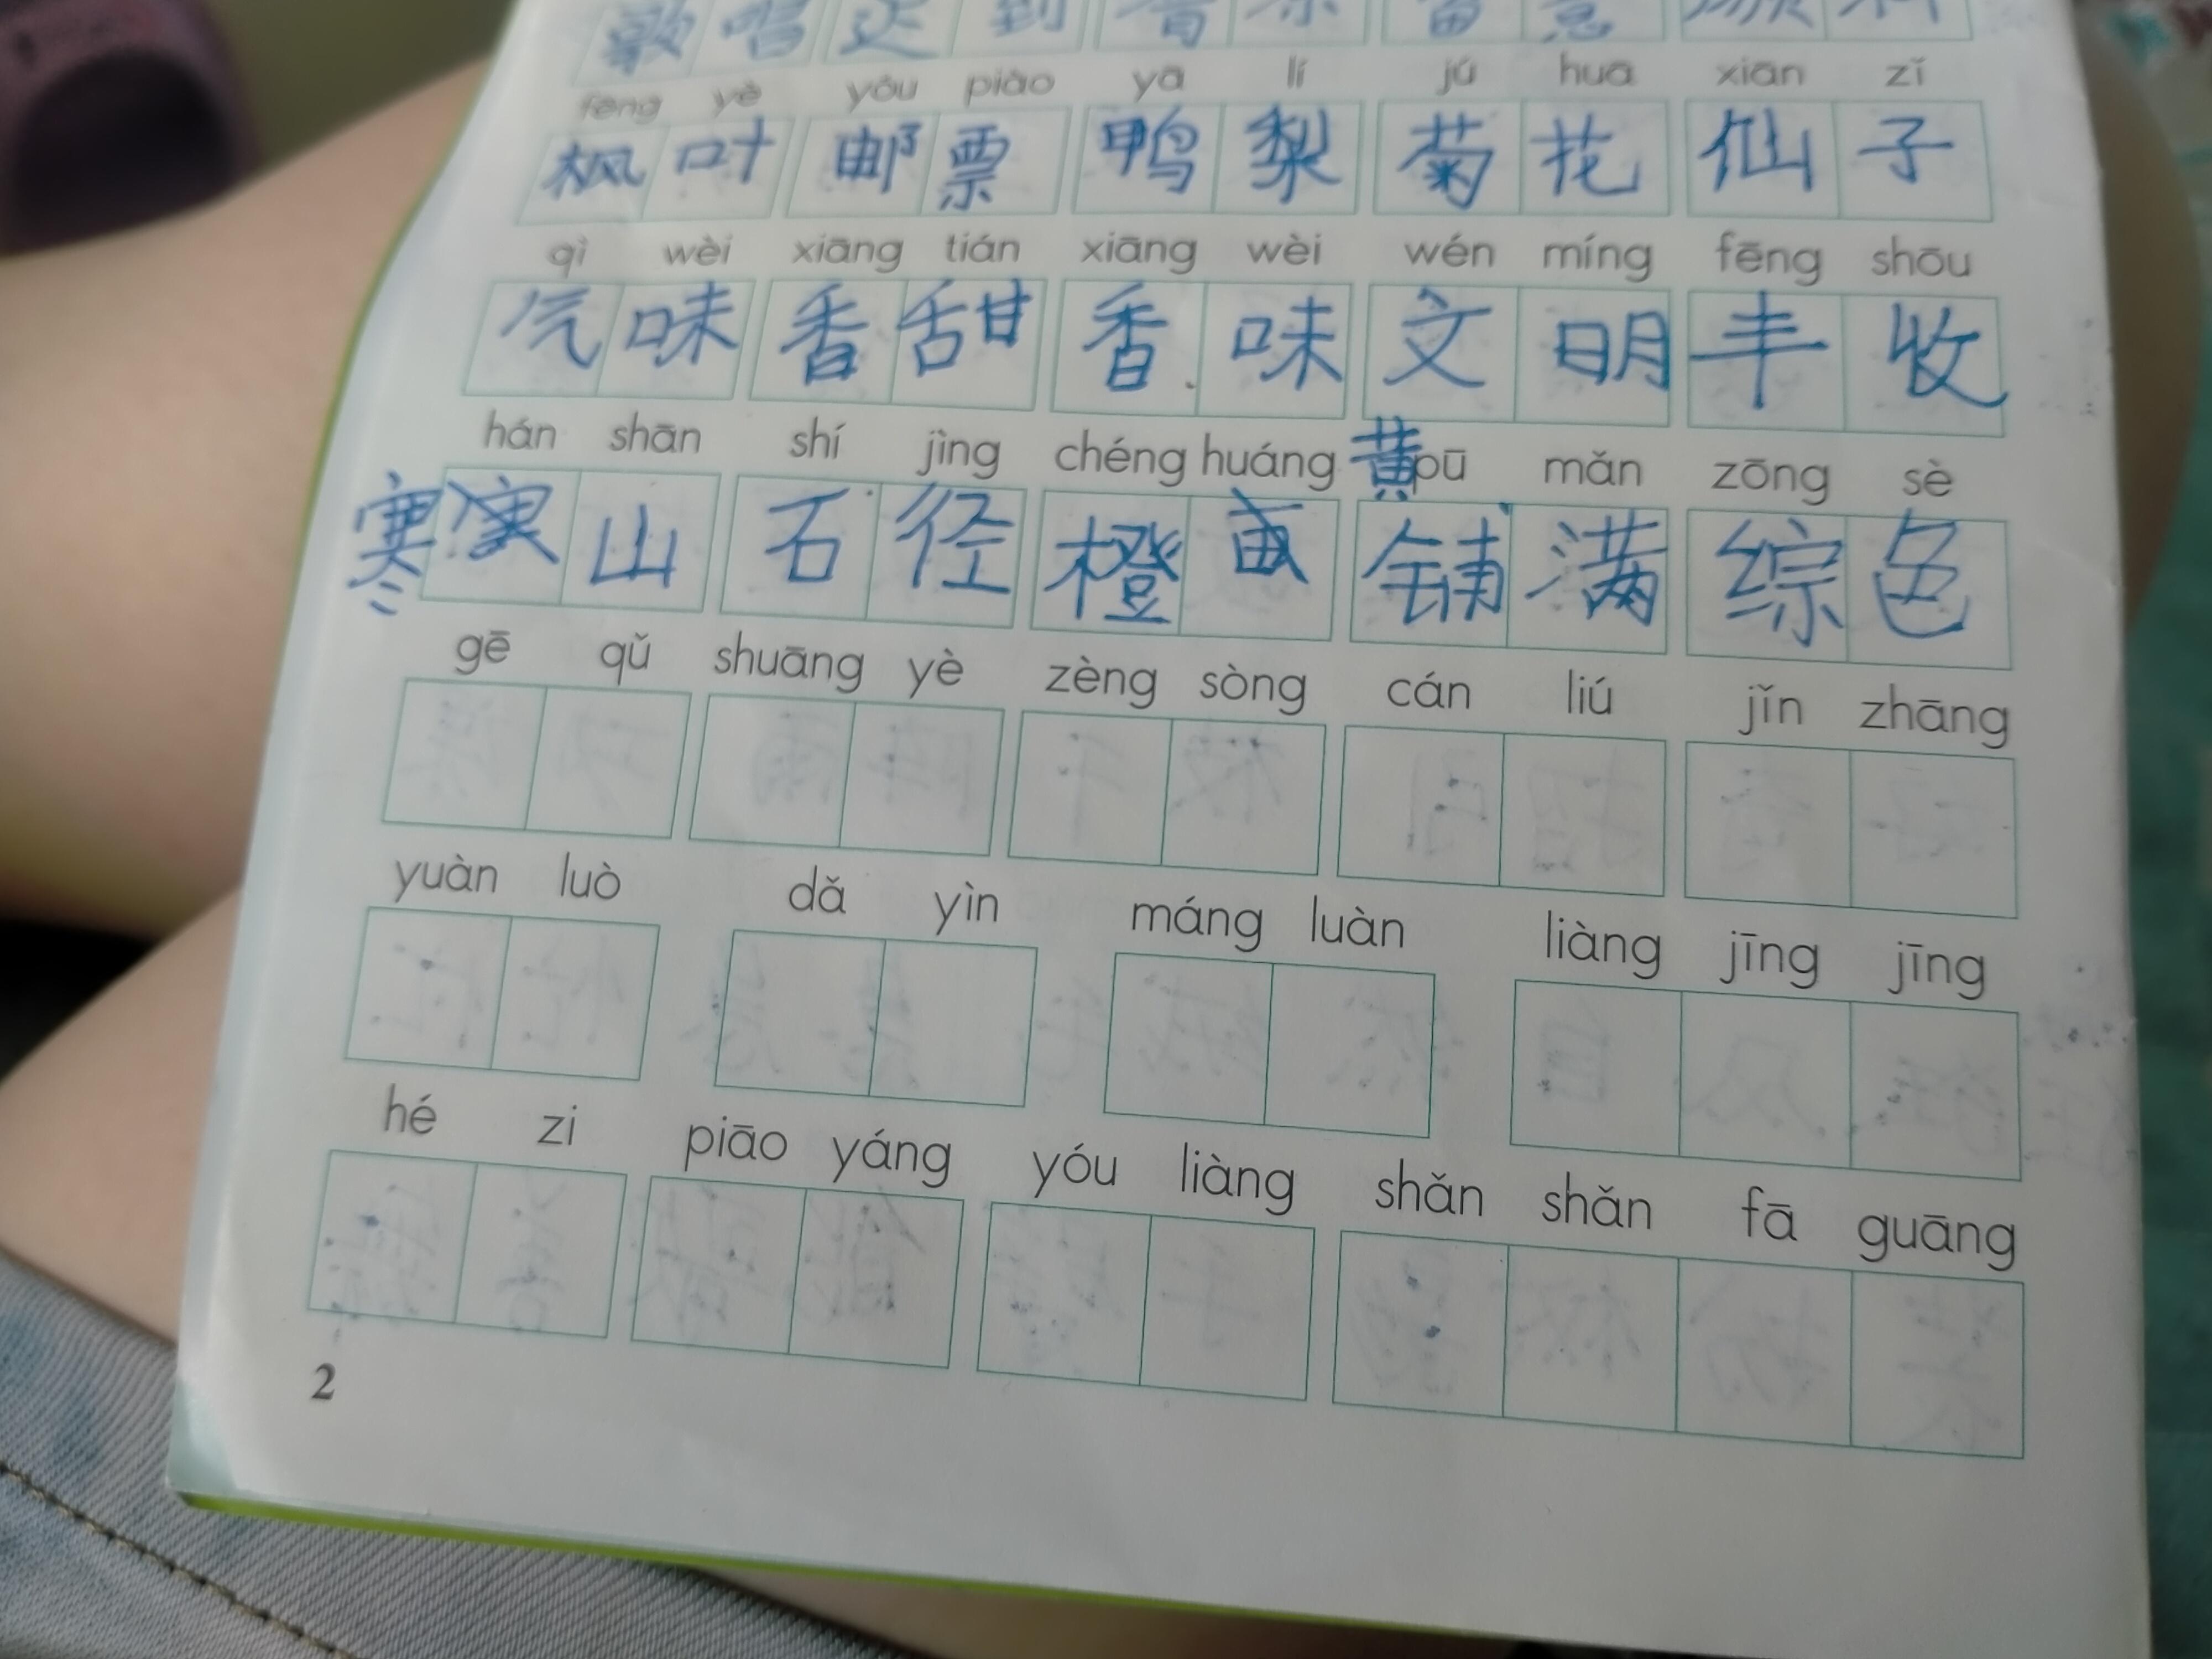 歌 唱 迟 到 留 意
fēng yè yóu piào yā lí jú huā xiān zǐ
枫 叶 邮 票 鸭 梨 菊 花 仙 子
qì wèi xiāng tián xiāng wèi wén míng fēng shōu
气 味 香 甜 香 味 文 明 丰 收
hán shān shí jìng chéng huáng pū mǎn zōng sè
寒 山 石 径 橙 黄 铺 满 综 色
gē qǔ shuāng yè zèng sòng cán liú jǐn zhāng
yuàn luò dǎ yìn máng luàn liàng jīng jīng
hé zi piāo yáng yóu liàng shǎn shǎn fā guāng
2